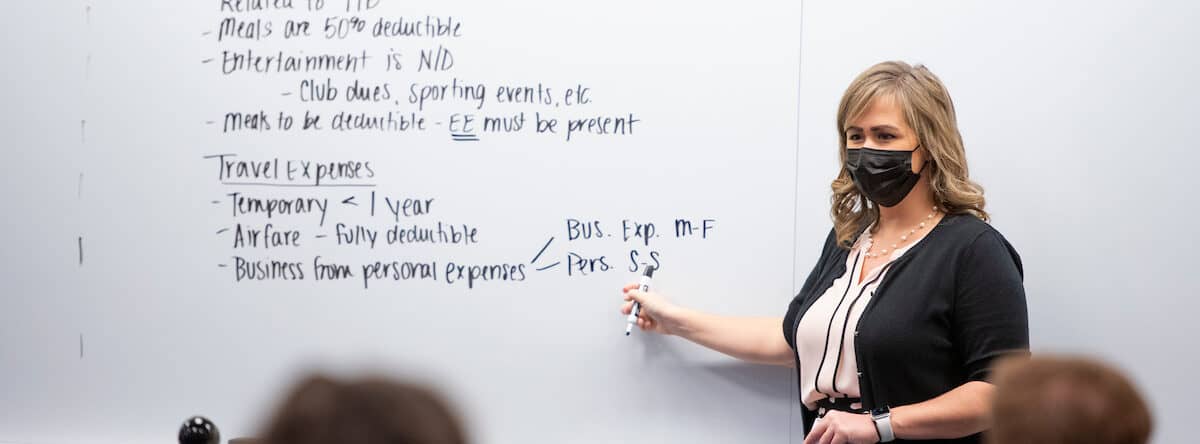 Related to T/B
- Meals are 50% deductible
- Entertainment is N/D
- Club dues, sporting events, etc.
- Meals to be deductible - EE must be present
Travel Expenses
- Temporary < 1 year
- Airfare - Fully deductible
- Business from personal expenses
Bus. Exp. M-F
Pers. S-S